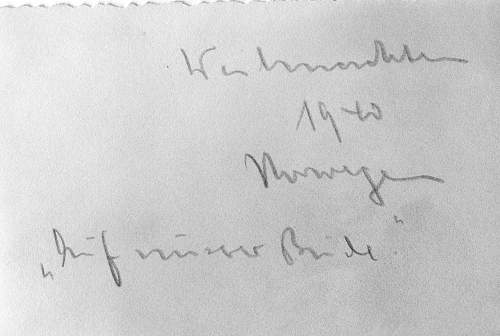 Weihnachten
1940
Norwegen
„Auf unserer Bude"